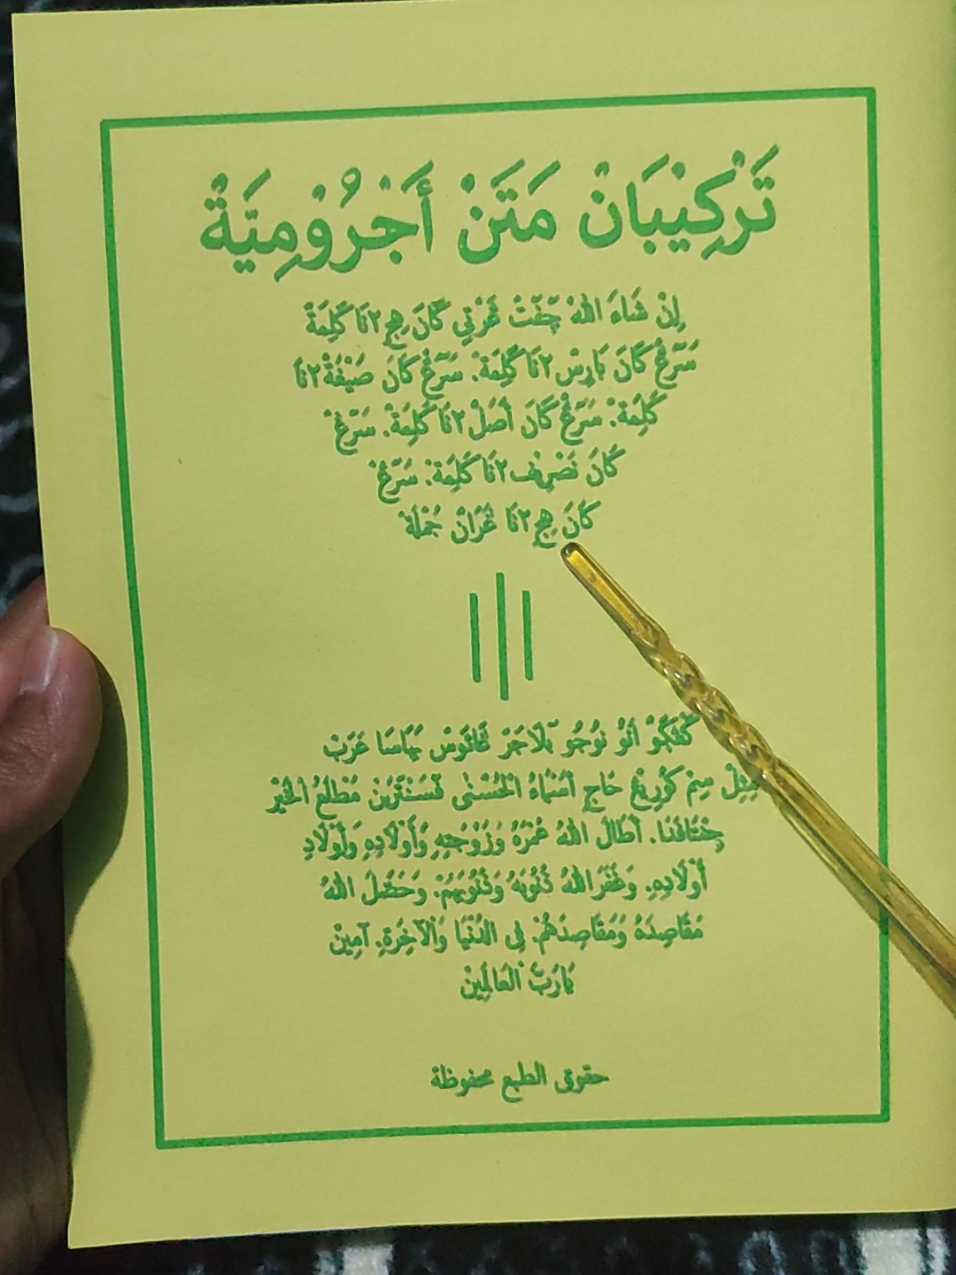 تَرْكِيْبَانْ مَتَنْ أَجْرُوْمِيَّةْ
إِنْ شَاءَ اللهْ چَفَتْ غَرْتِي كَانَ هِجِ٢نَا كَلِمَةْ
سَرَّغْ كَانَ بَارِسْ٢نَا كَلِمَةْ. سَرَّغْ كَانَ صِيْغَةْ٢نَا
كَلِمَةْ. سَرَّغْ كَانَ أَصَلْ٢نَا كَلِمَةْ. سَرَّغْ
كَانَ تَصْرِيْف٢نَا كَلِمَةْ. سَرَّغْ
كَانَ هِجِ٢نَا غَرَانْ جُمْلَةْ
أَنُوْ نُوْجُوْ بَلَاجَرْ بَهَاسَا عَرَبْ
حَاجِ أَسْمَاءُ الْحُسْنٰى ڤَسَنْتْرَيْنْ مَطْلَعُ الْخَيْر
أَطَالَ اللهُ عُمْرَهُ وَزَوْجَتِهِ وَأَوْلَادِهِ وَأَوْلَادِ
أَوْلَادِهِ. وَغَفَرَ اللهُ ذُنُوْبَهُ وَذُنُوْبَهُمْ. وَحَصَّلَ اللهُ
مَقَاصِدَهُ وَمَقَاصِدَهُمْ. فِى الدُّنْيَا وَالْآخِرَةِ. آمِيْنَ
يَارَبَّ الْعَالَمِيْنْ
حقوق الطبع محفوظة